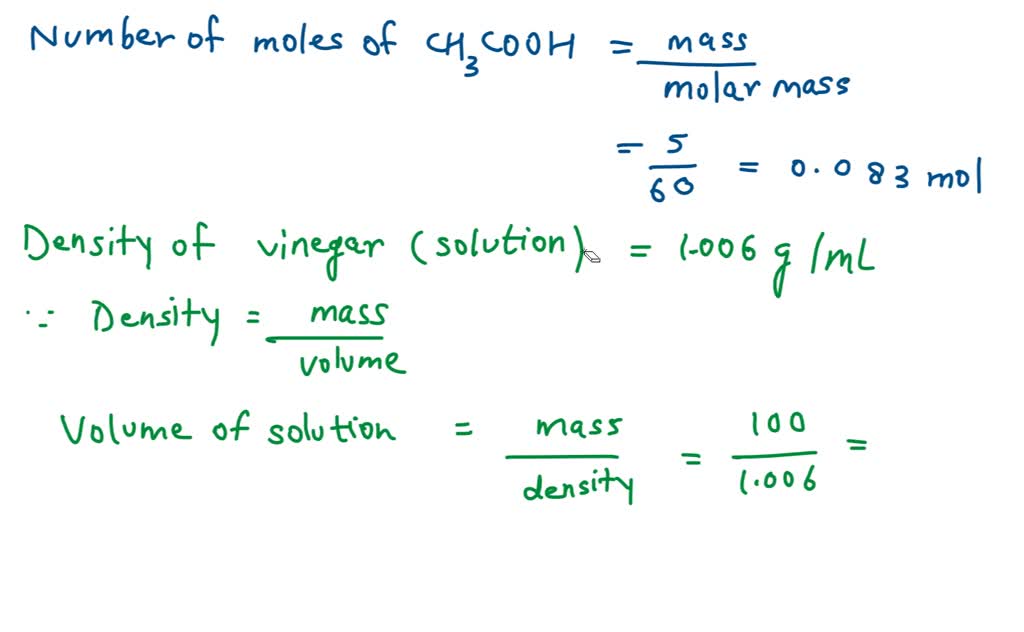 Number of moles of CH3COOH = mass / molar mass
= 5 / 60 = 0.083 mol
Density of vinegar (solution) = 1.006 g/mL
∵ Density = mass / volume
Volume of solution = mass / density = 100 / 1.006 =